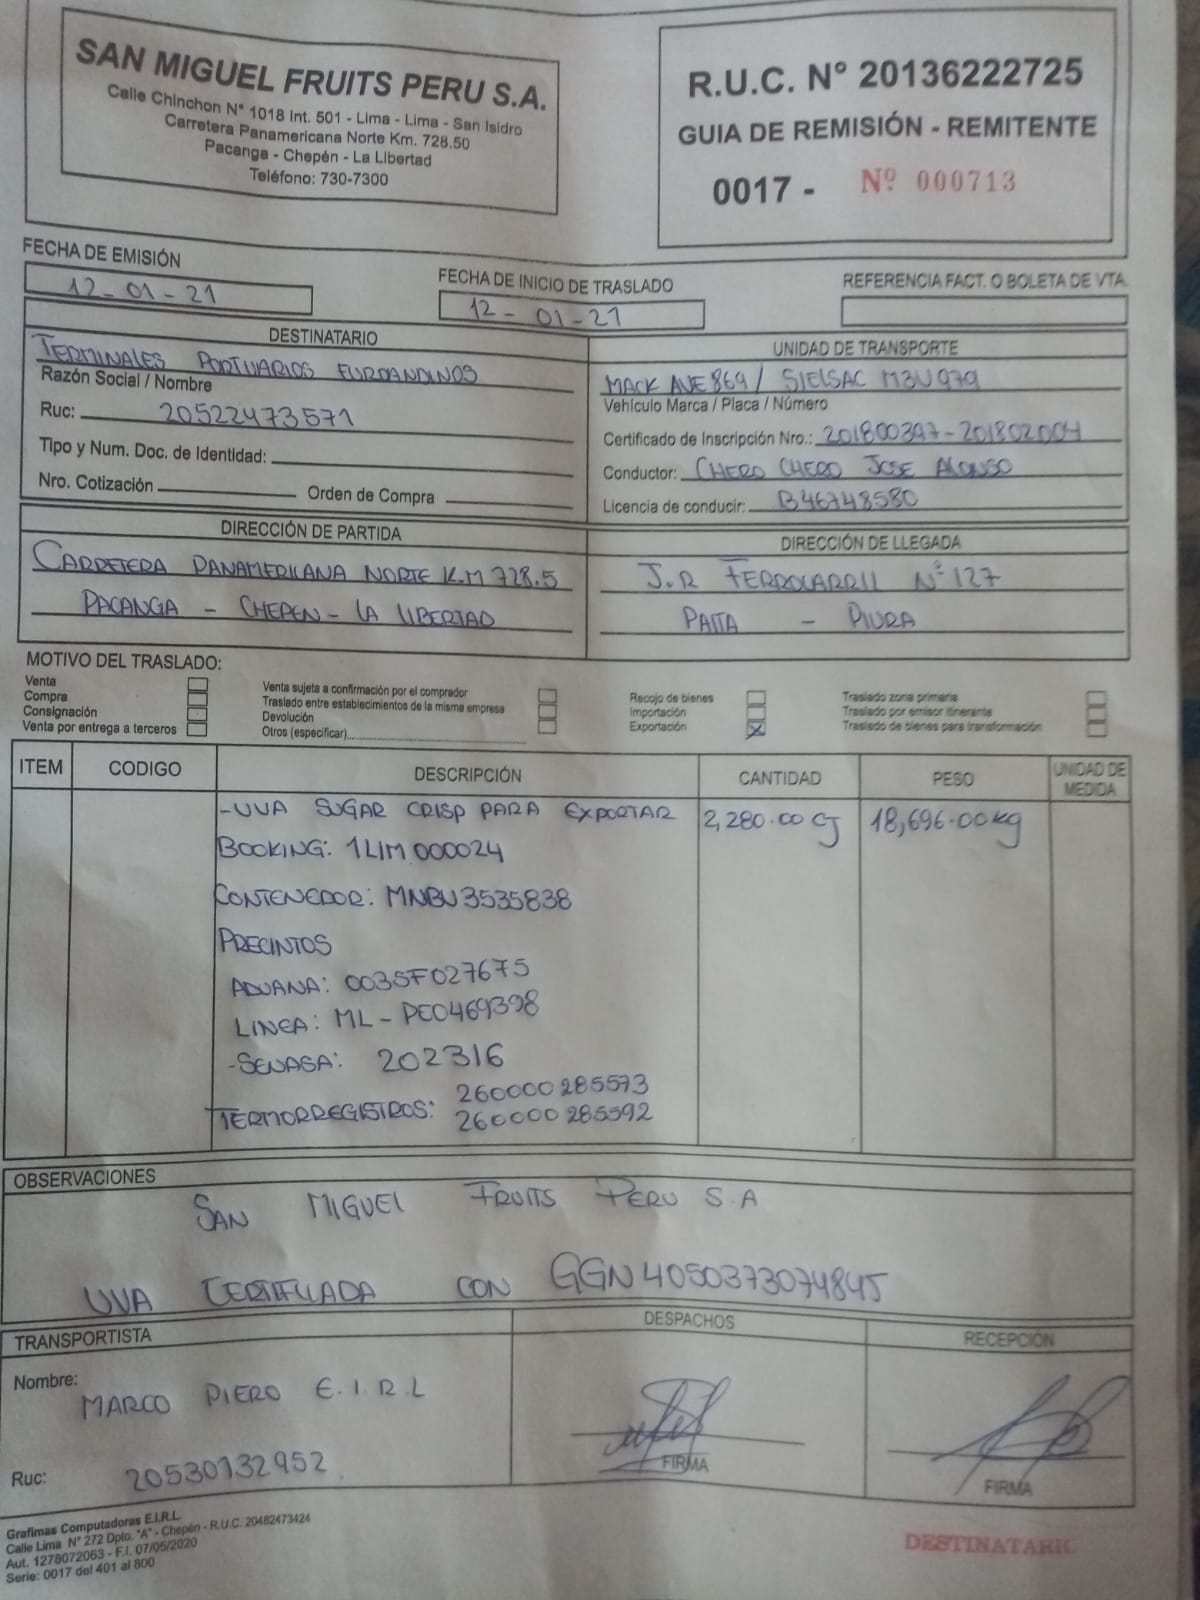 SAN MIGUEL FRUITS PERU S.A.
Calle Chinchon N° 1018 Int. 501 - Lima - Lima - San Isidro
Carretera Panamericana Norte Km. 728.50
Pacanga - Chepén - La Libertad
Teléfono: 730-7300
R.U.C. N° 20136222725
GUIA DE REMISIÓN - REMITENTE
0017 - Nº 000713
FECHA DE EMISIÓN
12-01-21
FECHA DE INICIO DE TRASLADO
12-01-21
REFERENCIA FACT. O BOLETA DE VTA.
DESTINATARIO
TERMINALES PORTUARIOS EUROANDINOS
Razón Social / Nombre
Ruc: 20522473571
Tipo y Num. Doc. de Identidad:
Nro. Cotización Orden de Compra
UNIDAD DE TRANSPORTE
MACK AVE869/ SIELSAC M3U979
Vehículo Marca / Placa / Número
Certificado de Inscripción Nro.: 201800397-201802004
Conductor: CHERO CHERO JOSE ALONSO
Licencia de conducir: B46748580
DIRECCIÓN DE PARTIDA
CARRETERA PANAMERICANA NORTE K.M 728.5
PACANGA - CHEPEN - LA LIBERTAD
DIRECCIÓN DE LLEGADA
J.R FERROCARRIL N°127
PAITA - PIURA
MOTIVO DEL TRASLADO:
Venta
Compra
Consignación
Venta por entrega a terceros
Venta sujeta a confirmación por el comprador
Traslado entre establecimientos de la misma empresa
Devolución
Otros (especificar)
Recojo de bienes
Importación
Exportación X
Traslado zona primaria
Traslado por emisor itinerante
Traslado de bienes para transformación
ITEM CODIGO DESCRIPCIÓN CANTIDAD PESO UNIDAD DE MEDIDA
-UVA SUGAR CRISP PARA EXPORTAR 2,280.00 CJ 18,696.00 kg
BOOKING: 1LIM000024
CONTENEDOR: MNBU3535838
PRECINTOS
ADUANA: 003SF027675
LINEA: ML-PE0469398
-SENASA: 202316
TERMORREGISTROS: 260000285573
260000285592
OBSERVACIONES
SAN MIGUEL FRUITS PERU S.A
UVA CERTIFICADA CON GGN4050373074845
TRANSPORTISTA
Nombre: MARCO PIERO E.I.R.L
Ruc: 20530132952
DESPACHOS
FIRMA
RECEPCIÓN
FIRMA
Grafimas Computadoras E.I.R.L.
Calle Lima N° 272 Dpto. "A" - Chepén - R.U.C. 20482473424
Aut. 1278072063 - F.I. 07/05/2020
Serie: 0017 del 401 al 800
DESTINATARIO